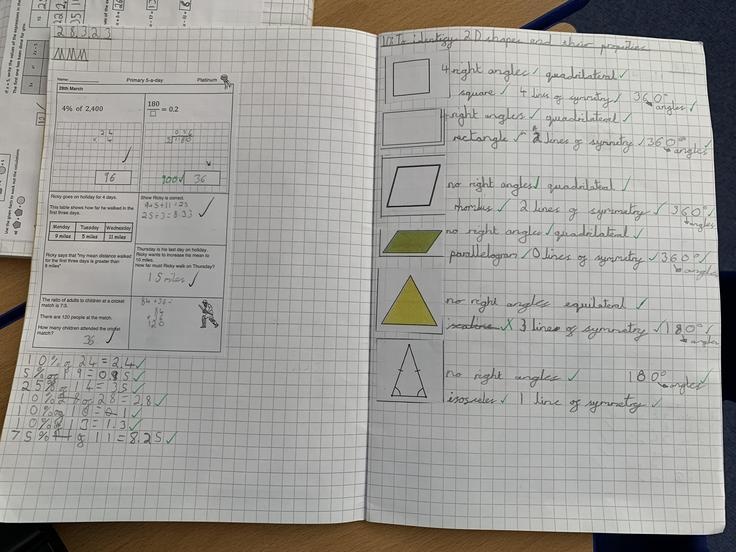 28,323
Name:
Primary 5-a-day
Platinum
28th March
4% of 2,400
96
180 = 0.2
900
36
Ricky goes on holiday for 4 days.
This table shows how far he walked in the first three days.
Monday Tuesday Wednesday
9 miles 5 miles 11 miles
Show Ricky is correct.
9+5+11=25
25÷3=8.33
Ricky says that "my mean distance walked for the first three days is greater than 8 miles"
Thursday is his last day on holiday.
Ricky wants to increase his mean to 10 miles.
How far must Ricky walk on Thursday?
15 miles
The ratio of adults to children at a cricket match is 7:3.
There are 120 people at the match.
How many children attended the cricket match?
36
84+36=
84
120
10% of 24 = 2.4
25% of 14 = 3.5
10% of 28 = 2.8
10% of 13 = 1.3
75% of 11 = 8.25
to identify 2D shapes and show properties
4 right angles quadrilateral
square 4 lines of symmetry 360° angles
4 right angles quadrilateral
rectangle 2 lines of symmetry 360° angles
no right angles quadrilateral
rhombus 2 lines of symmetry 360° angles
no right angles quadrilateral
parallelogram 0 lines of symmetry 360° angles
no right angles equilateral
scalene X 3 lines of symmetry 180° angles
no right angles 180° angles
isosceles 1 line of symmetry